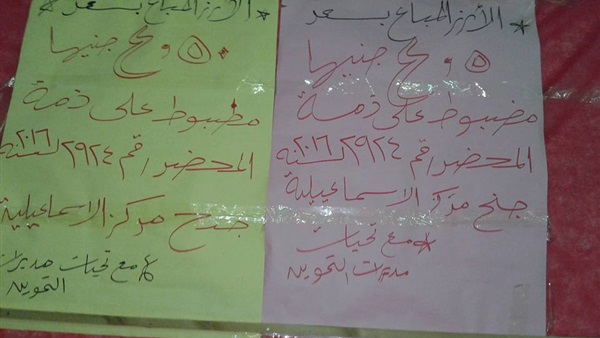 * الأرز المباع بسعر
٥ و ٤ جنيها
مضبوط على ذمة
المحضر رقم ٢٩٢٤ لسنة ٢٠١٦
جنح مركز الاسماعيلية
* مع تحيات
مديرات التموين
* الأرز المباع بسعر
٥ و ٤ جنيها
مضبوط على ذمة
المحضر رقم ٢٩٢٤ لسنة ٢٠١٦
جنح مركز الاسماعيلية
مع تحيات مديرات
التموين